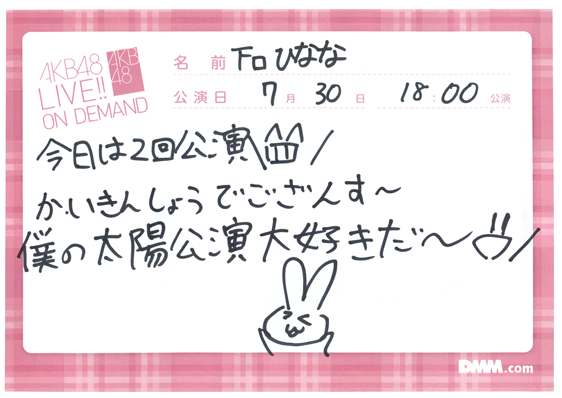 AKB48
LIVE!!
ON DEMAND
AKB
48
名前 下口ひなな
公演日 7月30日 18:00公演
今日は2回公演
かいきんしょうでござんす〜
僕の太陽公演大好きだ〜
DMM.com